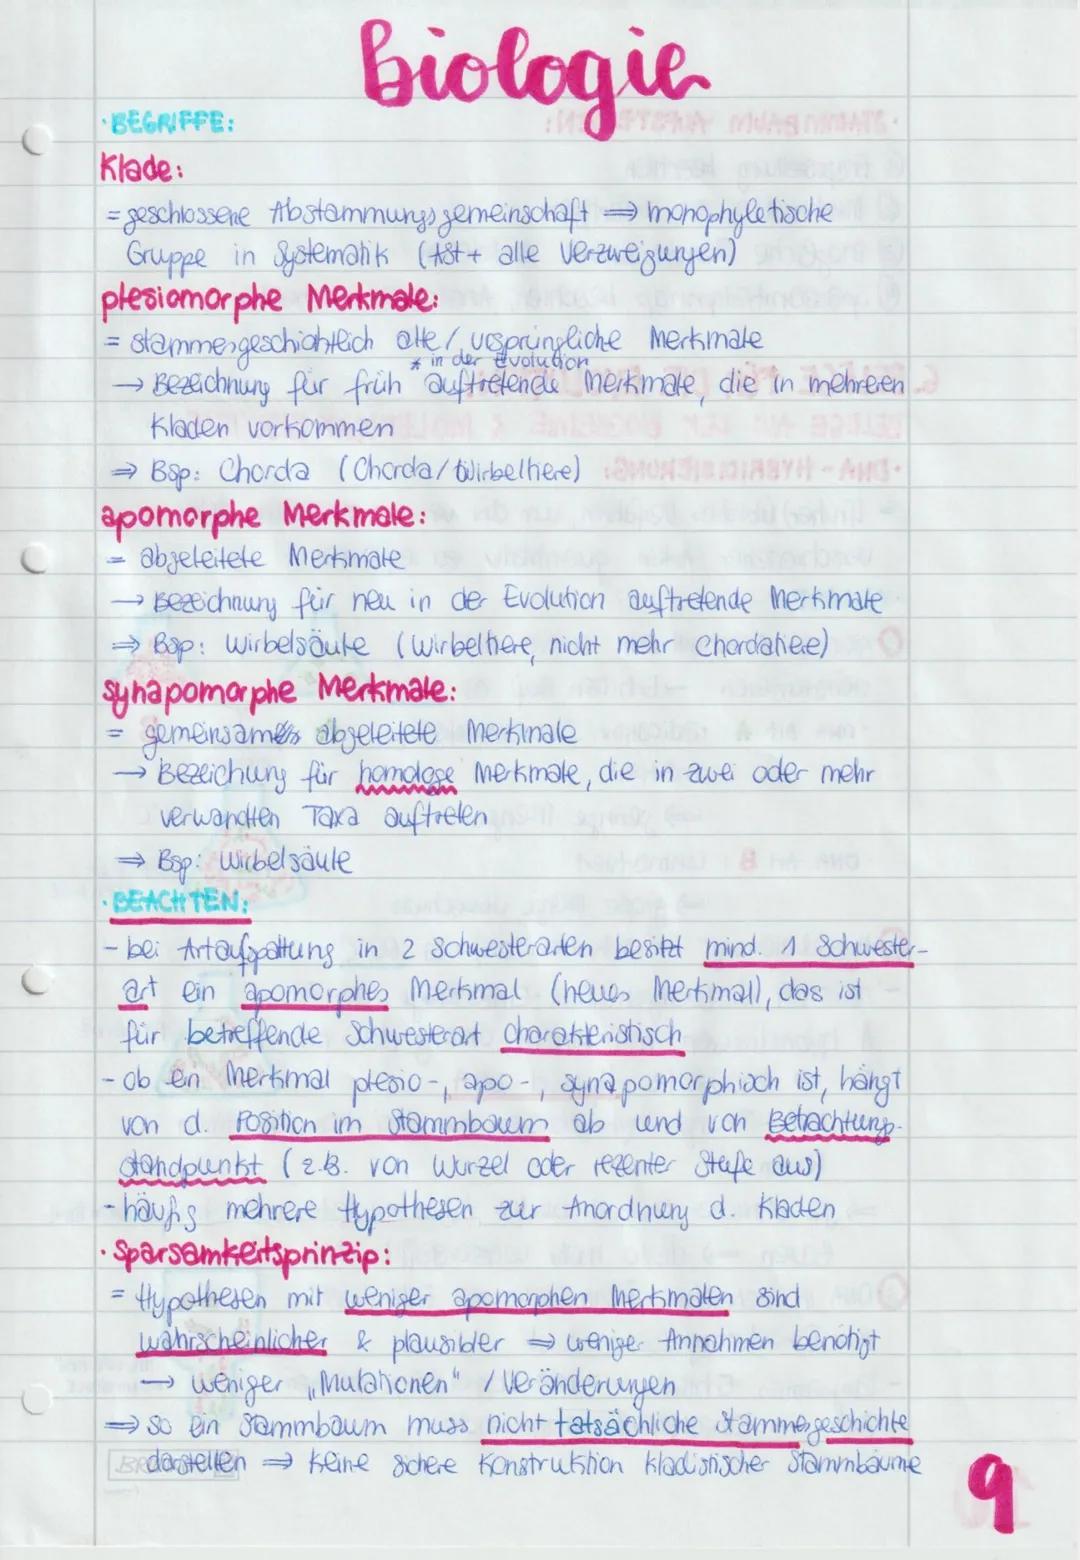 Biologie
· BEGRIFFE:
Klade:
= geschlossene Abstammungsgemeinschaft ⇒ monophyletische
Gruppe in Systematik (Ast + alle Verzweigungen)
plesiomorphe Merkmale:
= stammesgeschichtlich alte / ursprüngliche Merkmale
* in der Evolution
→ Bezeichnung für früh * auftretende Merkmale, die in mehreren
Kladen vorkommen
⇒ Bsp: Chorda (Chorda/Wirbeltiere)
apomorphe Merkmale:
= abgeleitete Merkmale
→ Bezeichnung für neu in der Evolution auftretende Merkmale
⇒ Bsp: Wirbelsäule (Wirbeltiere, nicht mehr Chordatiere)
synapomorphe Merkmale:
= gemeinsame abgeleitete Merkmale
→ Bezeichung für homologe Merkmale, die in zwei oder mehr
verwandten Taxa auftreten
⇒ Bsp: Wirbelsäule
· BEACHTEN:
- bei Artaufspaltung in 2 Schwesterarten besitzt mind. 1 Schwester-
art ein apomorphes Merkmal (neues Merkmal), das ist
für betreffende Schwesterart charakteristisch
- ob ein Merkmal plesio-, apo-, synapomorphisch ist, hängt
von d. Position im Stammbaum ab und von Betrachtungs-
standpunkt (z.B. von Wurzel oder rezenter Stufe aus)
- häufig mehrere Hypothesen zur Anordnung d. Kladen
· Sparsamkeitsprinzip:
= Hypothesen mit weniger apomorphen Merkmalen sind
wahrscheinlicher & plausibler ⇒ weniger Annahmen benötigt
→ weniger „Mutationen" / Veränderungen
⇒ so ein Stammbaum muss nicht tatsächliche Stammesgeschichte
darstellen ⇒ keine sichere Konstruktion kladistischer Stammbäume
9